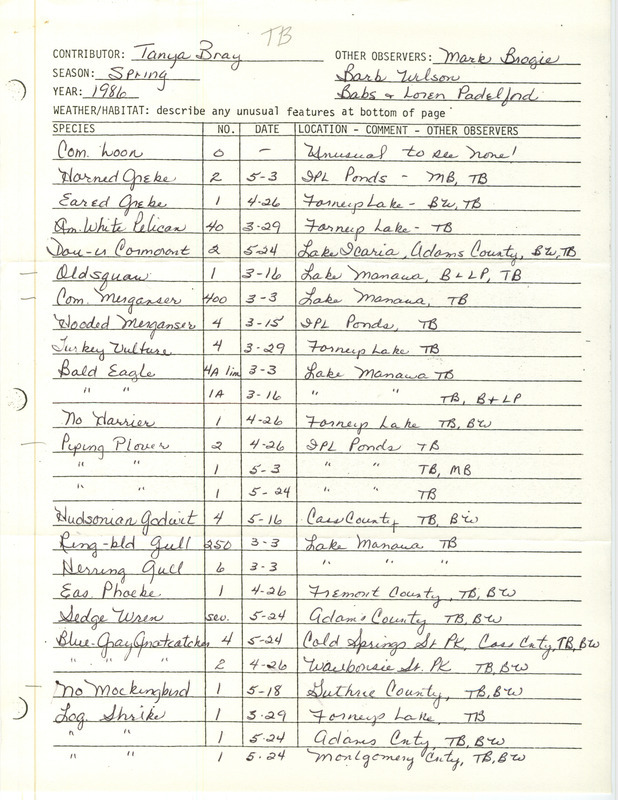 TB
CONTRIBUTOR: Tanya Bray OTHER OBSERVERS: Mark Brogie
SEASON: Spring Barb Wilson
YEAR: 1986 Babs & Loren Padelford
WEATHER/HABITAT: describe any unusual features at bottom of page
SPECIES NO. DATE LOCATION - COMMENT - OTHER OBSERVERS
Com. Loon 0 — Unusual to see none!
Horned Grebe 2 5-3 IPL Ponds - MB, TB
Eared Grebe 1 4-26 Forneys Lake - BW, TB
Am. White Pelican 40 3-29 Forneys Lake - TB
Dou-cr Cormorant 2 5-24 Lake Icaria, Adams County, BW, TB
Oldsquaw 1 3-16 Lake Manawa, B & LP, TB
Com. Merganser 400 3-3 Lake Manawa, TB
Hooded Merganser 4 3-15 IPL Ponds, TB
Turkey Vulture 4 3-29 Forneys Lake TB
Bald Eagle 4A 1im 3-3 Lake Manawa TB
" " 1A 3-16 " " TB, B & LP
No Harrier 1 4-26 Forneys Lake TB, BW
Piping Plover 2 4-26 IPL Ponds TB
" " 1 5-3 " " TB, MB
" " 1 5-24 " " TB
Hudsonian Godwit 4 5-16 Cass County TB, BW
Ring-bld Gull 250 3-3 Lake Manawa TB
Herring Gull 6 3-3 " " "
Eas. Phoebe 1 4-26 Fremont County, TB, BW
Sedge Wren sev. 5-24 Adams County TB, BW
Blue-Gray Gnatcatcher 4 5-24 Cold Springs St. PK, Cass Cnty, TB, BW
" " " 2 4-26 Waubonsie St. PK TB, BW
No Mockingbird 1 5-18 Guthrie County, TB, BW
Log. Shrike 1 3-29 Forneys Lake, TB
" " 1 5-24 Adams Cnty, TB, BW
" " 1 5-24 Montgomery Cnty, TB, BW